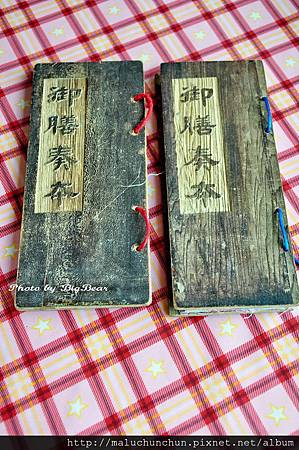 御膳奏本
御膳奏本
Photo by BigBear
http://maluchunchun.pixnet.net/album